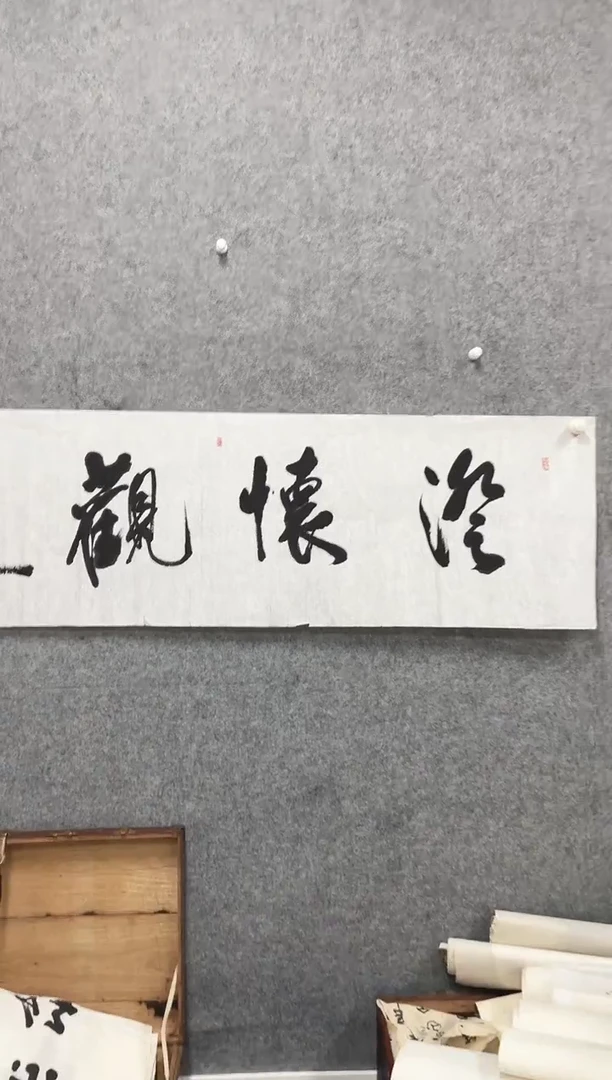 澄懷觀